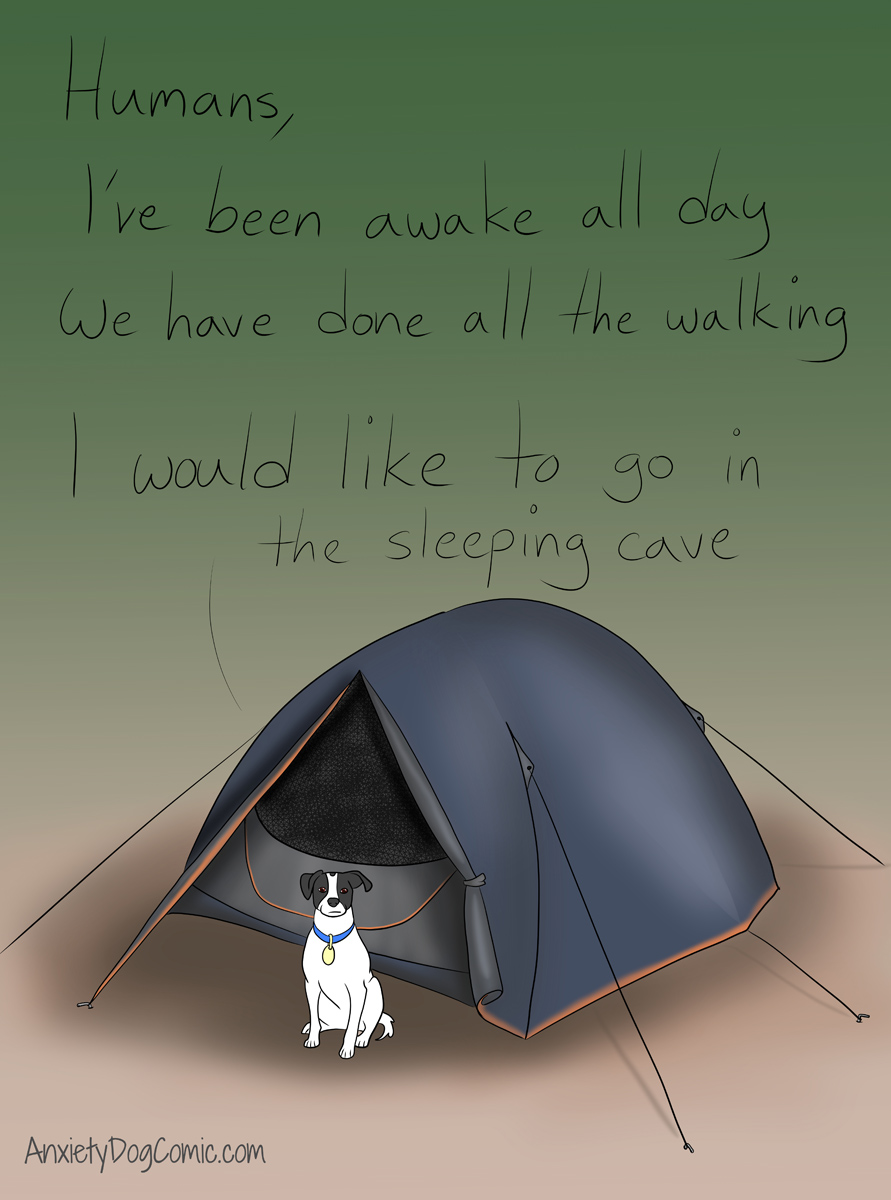 Humans,
I've been awake all day
We have done all the walking
I would like to go in
the sleeping cave
AnxietyDogComic.com